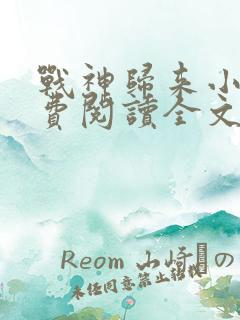 戰神歸來小
費閱讀全文
Reom 山崎の
未任同意禁止轉載